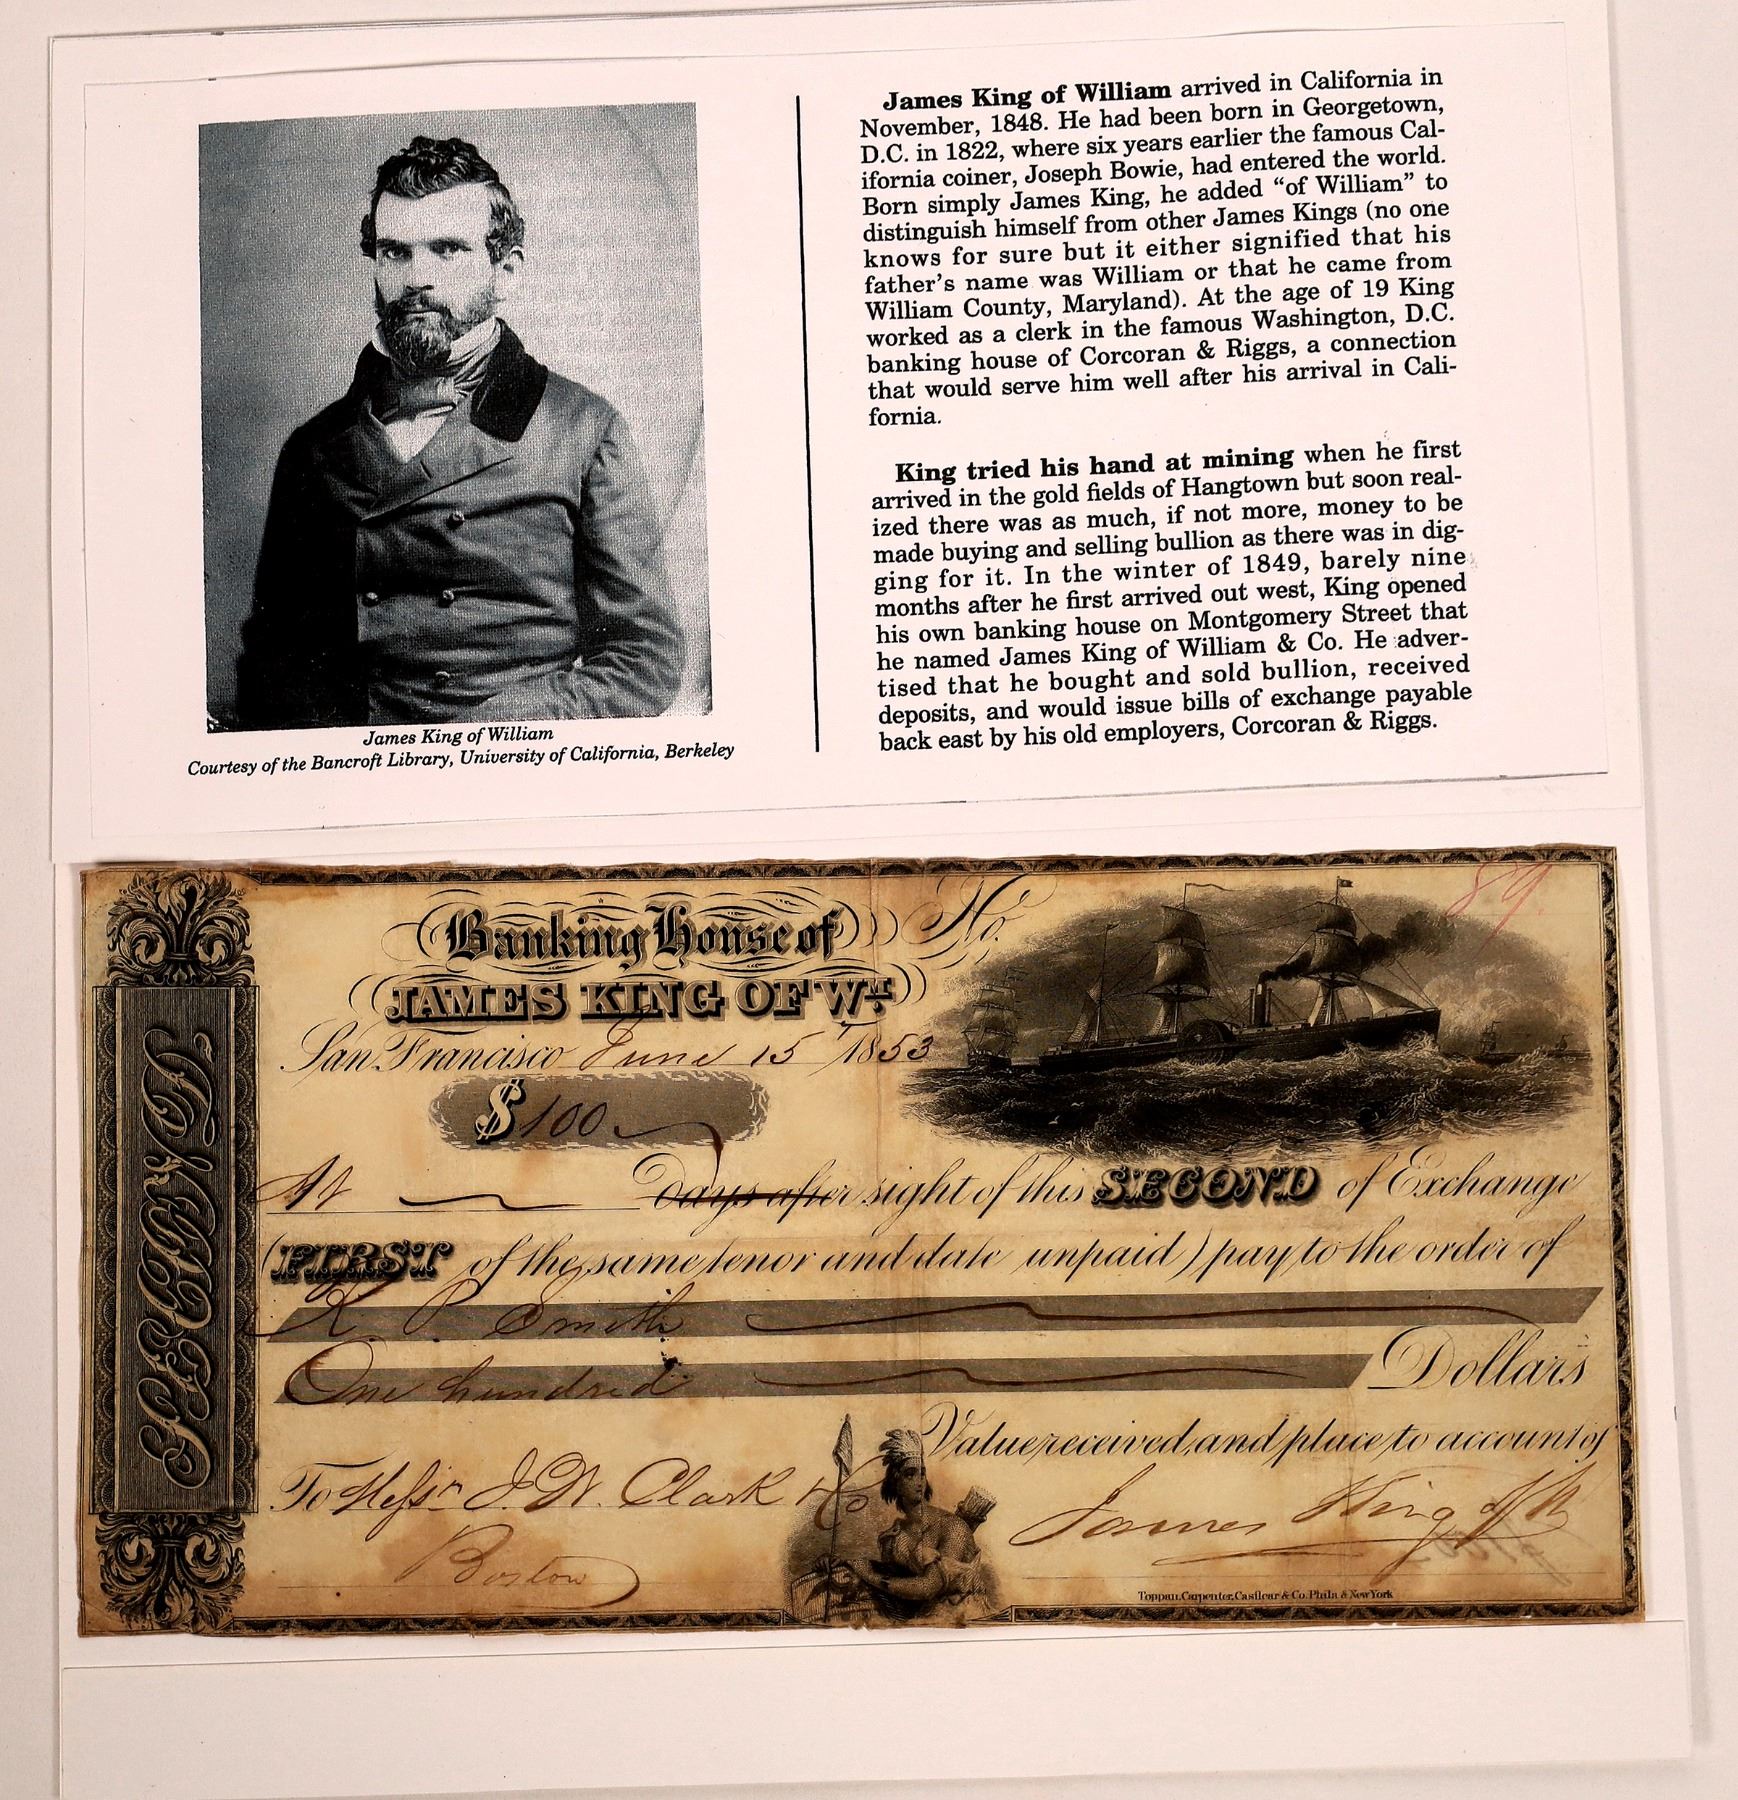 James King of William arrived in California in
November, 1848. He had been born in Georgetown,
D.C. in 1822, where six years earlier the famous Cal-
ifornia coiner, Joseph Bowie, had entered the world.
Born simply James King, he added “of William” to
distinguish himself from other James Kings (no one
knows for sure but it either signified that his
father’s name was William or that he came from
William County, Maryland). At the age of 19 King
worked as a clerk in the famous Washington, D.C.
banking house of Corcoran & Riggs, a connection
that would serve him well after his arrival in Cali-
fornia.
King tried his hand at mining when he first
arrived in the gold fields of Hangtown but soon real-
ized there was as much, if not more, money to be
made buying and selling bullion as there was in dig-
ging for it. In the winter of 1849, barely nine
months after he first arrived out west, King opened
his own banking house on Montgomery Street that
he named James King of William & Co. He adver-
tised that he bought and sold bullion, received
deposits, and would issue bills of exchange payable
back east by his old employers, Corcoran & Riggs.
James King of William
Courtesy of the Bancroft Library, University of California, Berkeley
SECOND
Banking House of No. 89.
JAMES KING OF Wm
San Francisco June 15 1853
$100
At Days after sight of this SECOND of Exchange
(FIRST of the same tenor and date unpaid) pay to the order of
K. P. Smith
One hundred Dollars
Value received, and place to account of
To Messrs J. W. Clark & Co James King of Wm
Boston
Toppan, Carpenter, Casilear & Co. Phila & New York